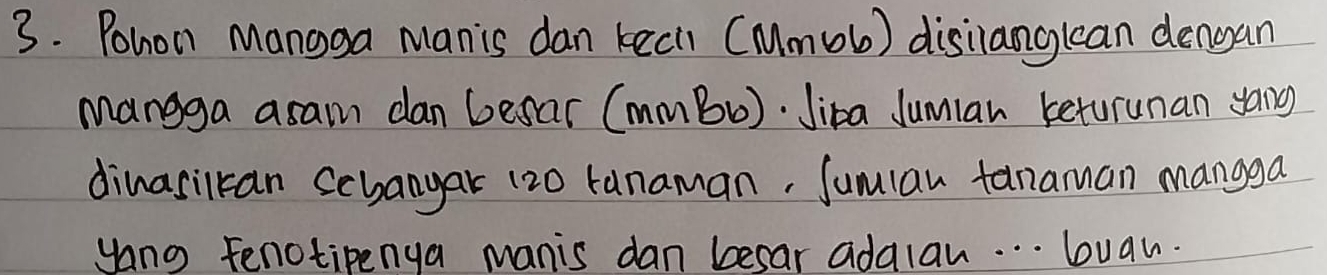 3. Pohon Mangga Manis dan kecil (Mmbb) disilangkan dengan
mangga asam dan besar (mmBb). Jika Jumlah keturunan yang
dihasilkan sebanyak 120 tanaman, Jumlah tanaman mangga
yang fenotipenya manis dan besar adalah ... buah.